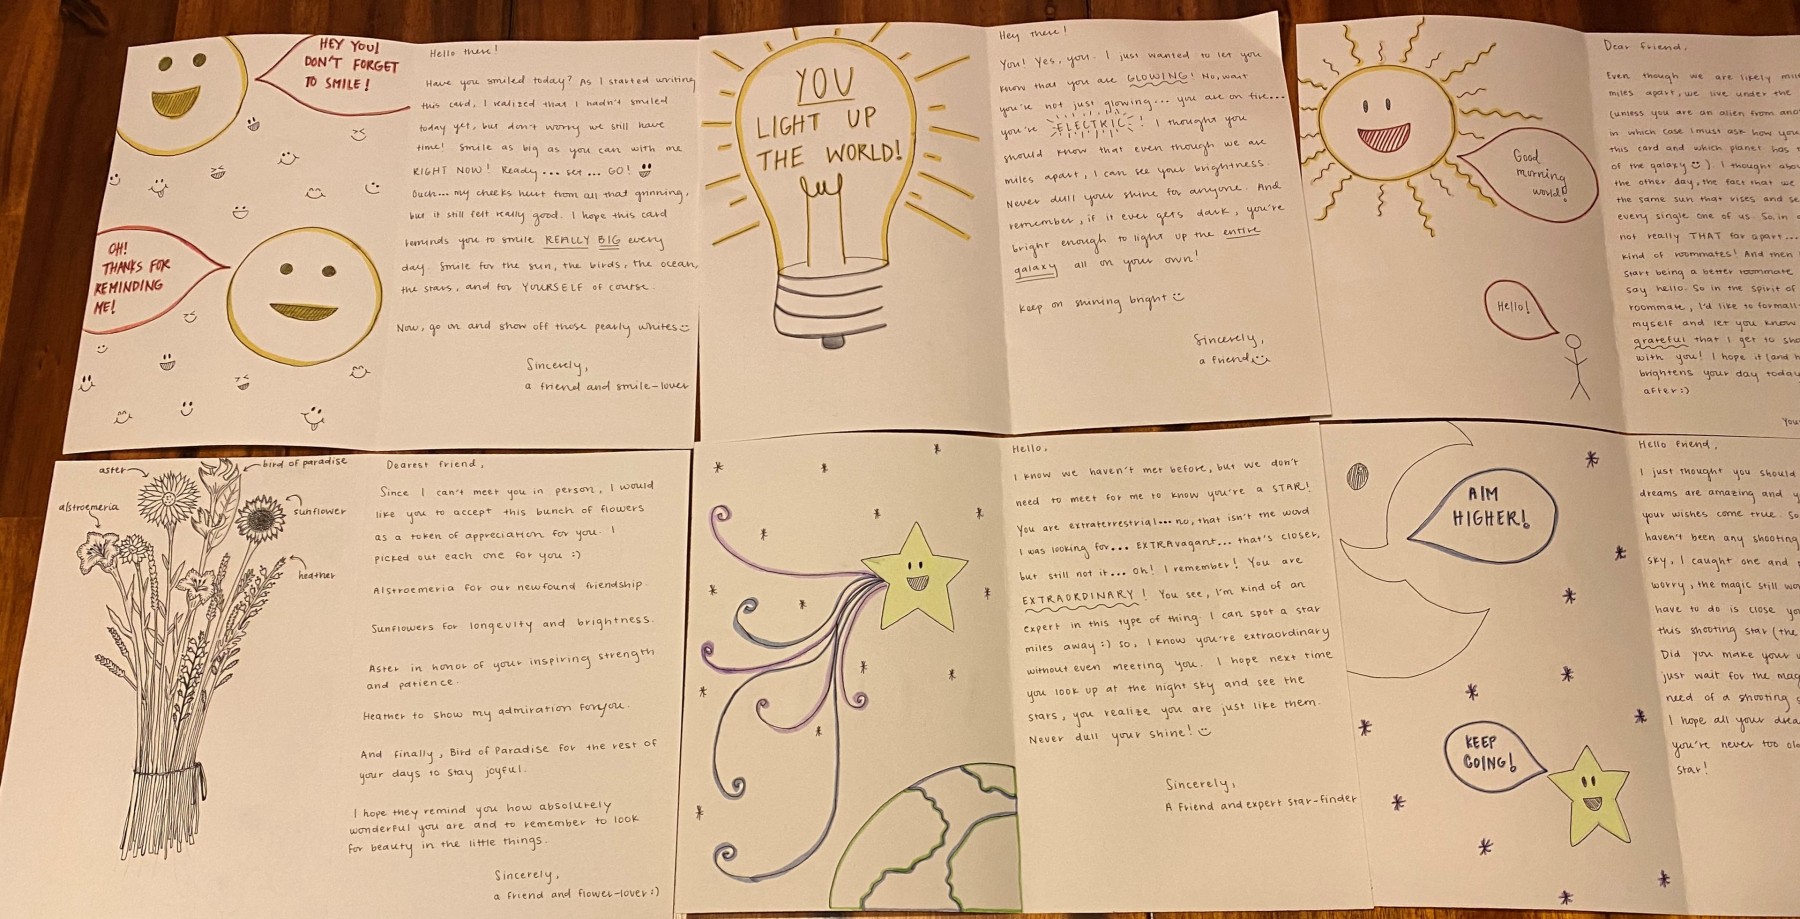 HEY YOU!
DON'T FORGET
TO SMILE!
OH!
THANKS FOR
REMINDING
ME!
Hello there!
Have you smiled today? As I started writing
this card, I realized that I hadn't smiled
today yet, but don't worry we still have
time! Smile as big as you can with me
RIGHT NOW! Ready... set... GO!
Ouch... my cheeks hurt from all that grinning,
but it still felt really good. I hope this card
reminds you to smile REALLY BIG every
day. Smile for the sun, the birds, the ocean,
the stars, and for YOURSELF of course.
Now, go on and show off those pearly whites
Sincerely,
a friend and smile-lover
YOU
LIGHT UP
THE WORLD!
Hey there!
You! Yes, you. I just wanted to let you
know that you are GLOWING! No, wait
you're not just glowing... you are on fire...
you're ELECTRIC! I thought you
should know that even though we are
miles apart, I can see your brightness.
Never dull your shine for anyone. And
remember, if it ever gets dark, you're
bright enough to light up the entire
galaxy all on your own!
Keep on shining bright
Sincerely,
a friend
Good
morning
world!
Hello!
Dear friend,
Even though we are likely
miles apart, we live under the
(unless you are an alien from
in which case I must ask how you
this card and which planet has
of the galaxy). I thought
the other day, the fact that we
the same sun that rises and
every single one of us. So, in
not really THAT far apart...
kind of roommates! And then
start being a better roommate
say hello. So in the spirit of
roommate, I'd like to
myself and let you know
grateful that I get to
with you! I hope it (and
brightens your day today
after:)
aster
bird of paradise
alstroemeria
sunflower
heather
Dearest friend,
Since I can't meet you in person, I would
like you to accept this bunch of flowers
as a token of appreciation for you. I
picked out each one for you :)
Alstroemeria for our newfound friendship.
Sunflowers for longevity and brightness.
Aster in honor of your inspiring strength
and patience.
Heather to show my admiration for you.
And finally, Bird of Paradise for the rest of
your days to stay joyful.
I hope they remind you how absolutely
wonderful you are and to remember to look
for beauty in the little things.
Sincerely,
a friend and flower-lover:)
Hello,
I know we haven't met before, but we don't
need to meet for me to know you're a STAR!
You are extraterrestrial... no, that isn't the word
I was looking for... EXTRAvagant... that's closer,
but still not it... Oh! I remember! You are
EXTRAORDINARY! You see, I'm kind of an
expert in this type of thing. I can spot a star
miles away:) So, I know you're extraordinary
without even meeting you. I hope next time
you look up at the night sky and see the
stars, you realize you are just like them.
Never dull your shine!
Sincerely,
A friend and expert star-finder
AIM
HIGHER!
KEEP
GOING!
Hello friend,
I just thought you should
dreams are amazing and
your wishes come true. So
haven't been any shooting
sky, I caught one and
worry, the magic still
have to do is close
this shooting star (the
Did you make your
just wait for the
need of a shooting
I hope all your
you're never too
star!